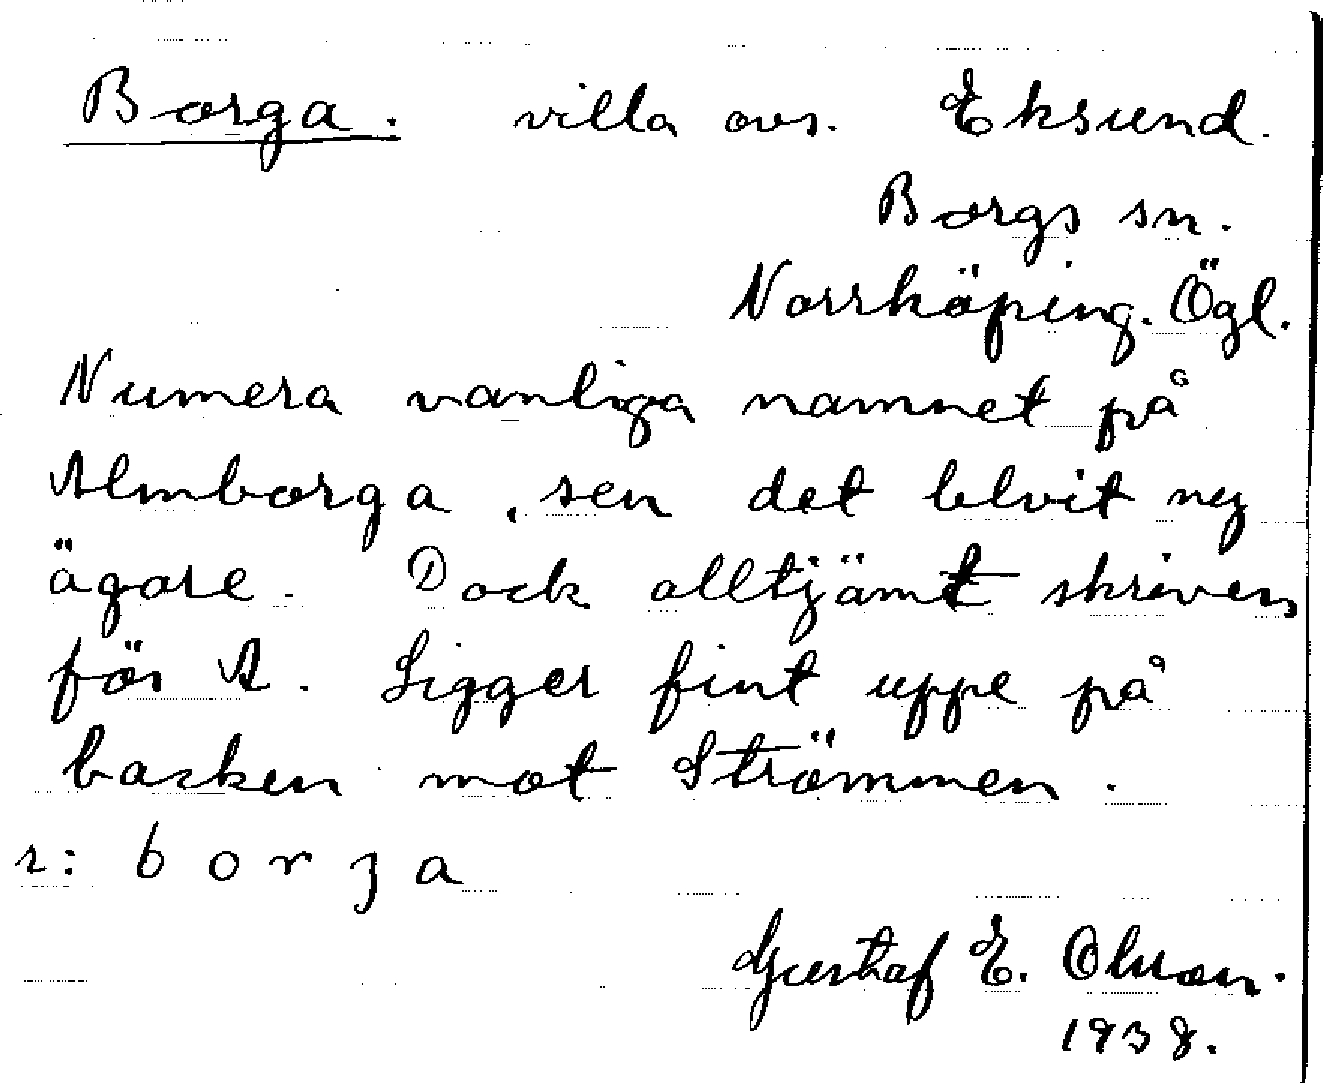 Borga. villa avs. Eksund.
Borgs sn.
Norrköping. Ögl.
Numera vanliga namnet på
Almborga, sen det blvit ny
ägare. Dock alltjämt skriven
för A. Ligger fint uppe på
backen mot Strömmen.
r: borja
Gustaf E. Olsson.
1938.